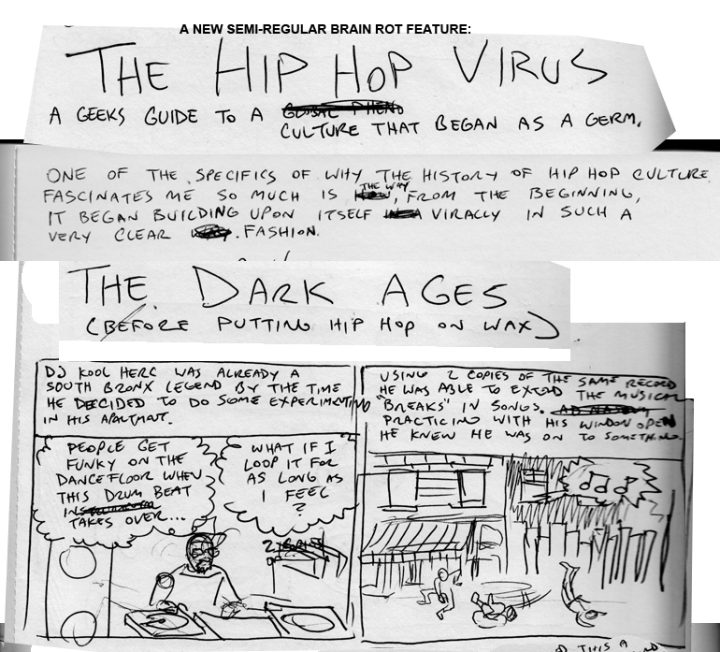 A NEW SEMI-REGULAR BRAIN ROT FEATURE:
THE HIP HOP VIRUS
A GEEKS GUIDE TO A
CULTURE THAT BEGAN AS A GERM.
ONE OF THE SPECIFICS OF WHY THE HISTORY OF HIP HOP CULTURE
FASCINATES ME SO MUCH IS THE WAY, FROM THE BEGINNING,
IT BEGAN BUILDING UPON ITSELF VIRALLY IN SUCH A
VERY CLEAR FASHION.
THE DARK AGES
(BEFORE PUTTING HIP HOP ON WAX)
DJ KOOL HERC WAS ALREADY A
SOUTH BRONX LEGEND BY THE TIME
HE DECIDED TO DO SOME EXPERIMENTING
IN HIS APARTMENT.
PEOPLE GET
FUNKY ON THE
DANCE FLOOR WHEN
THIS DRUM BEAT
TAKES OVER...
WHAT IF I
LOOP IT FOR
AS LONG AS
I FEEL
?
USING 2 COPIES OF THE SAME RECORD
HE WAS ABLE TO EXTEND THE MUSICAL
"BREAKS" IN SONGS.
PRACTICING WITH HIS WINDOW OPEN
HE KNEW HE WAS ON TO SOMETHING.
THIS A